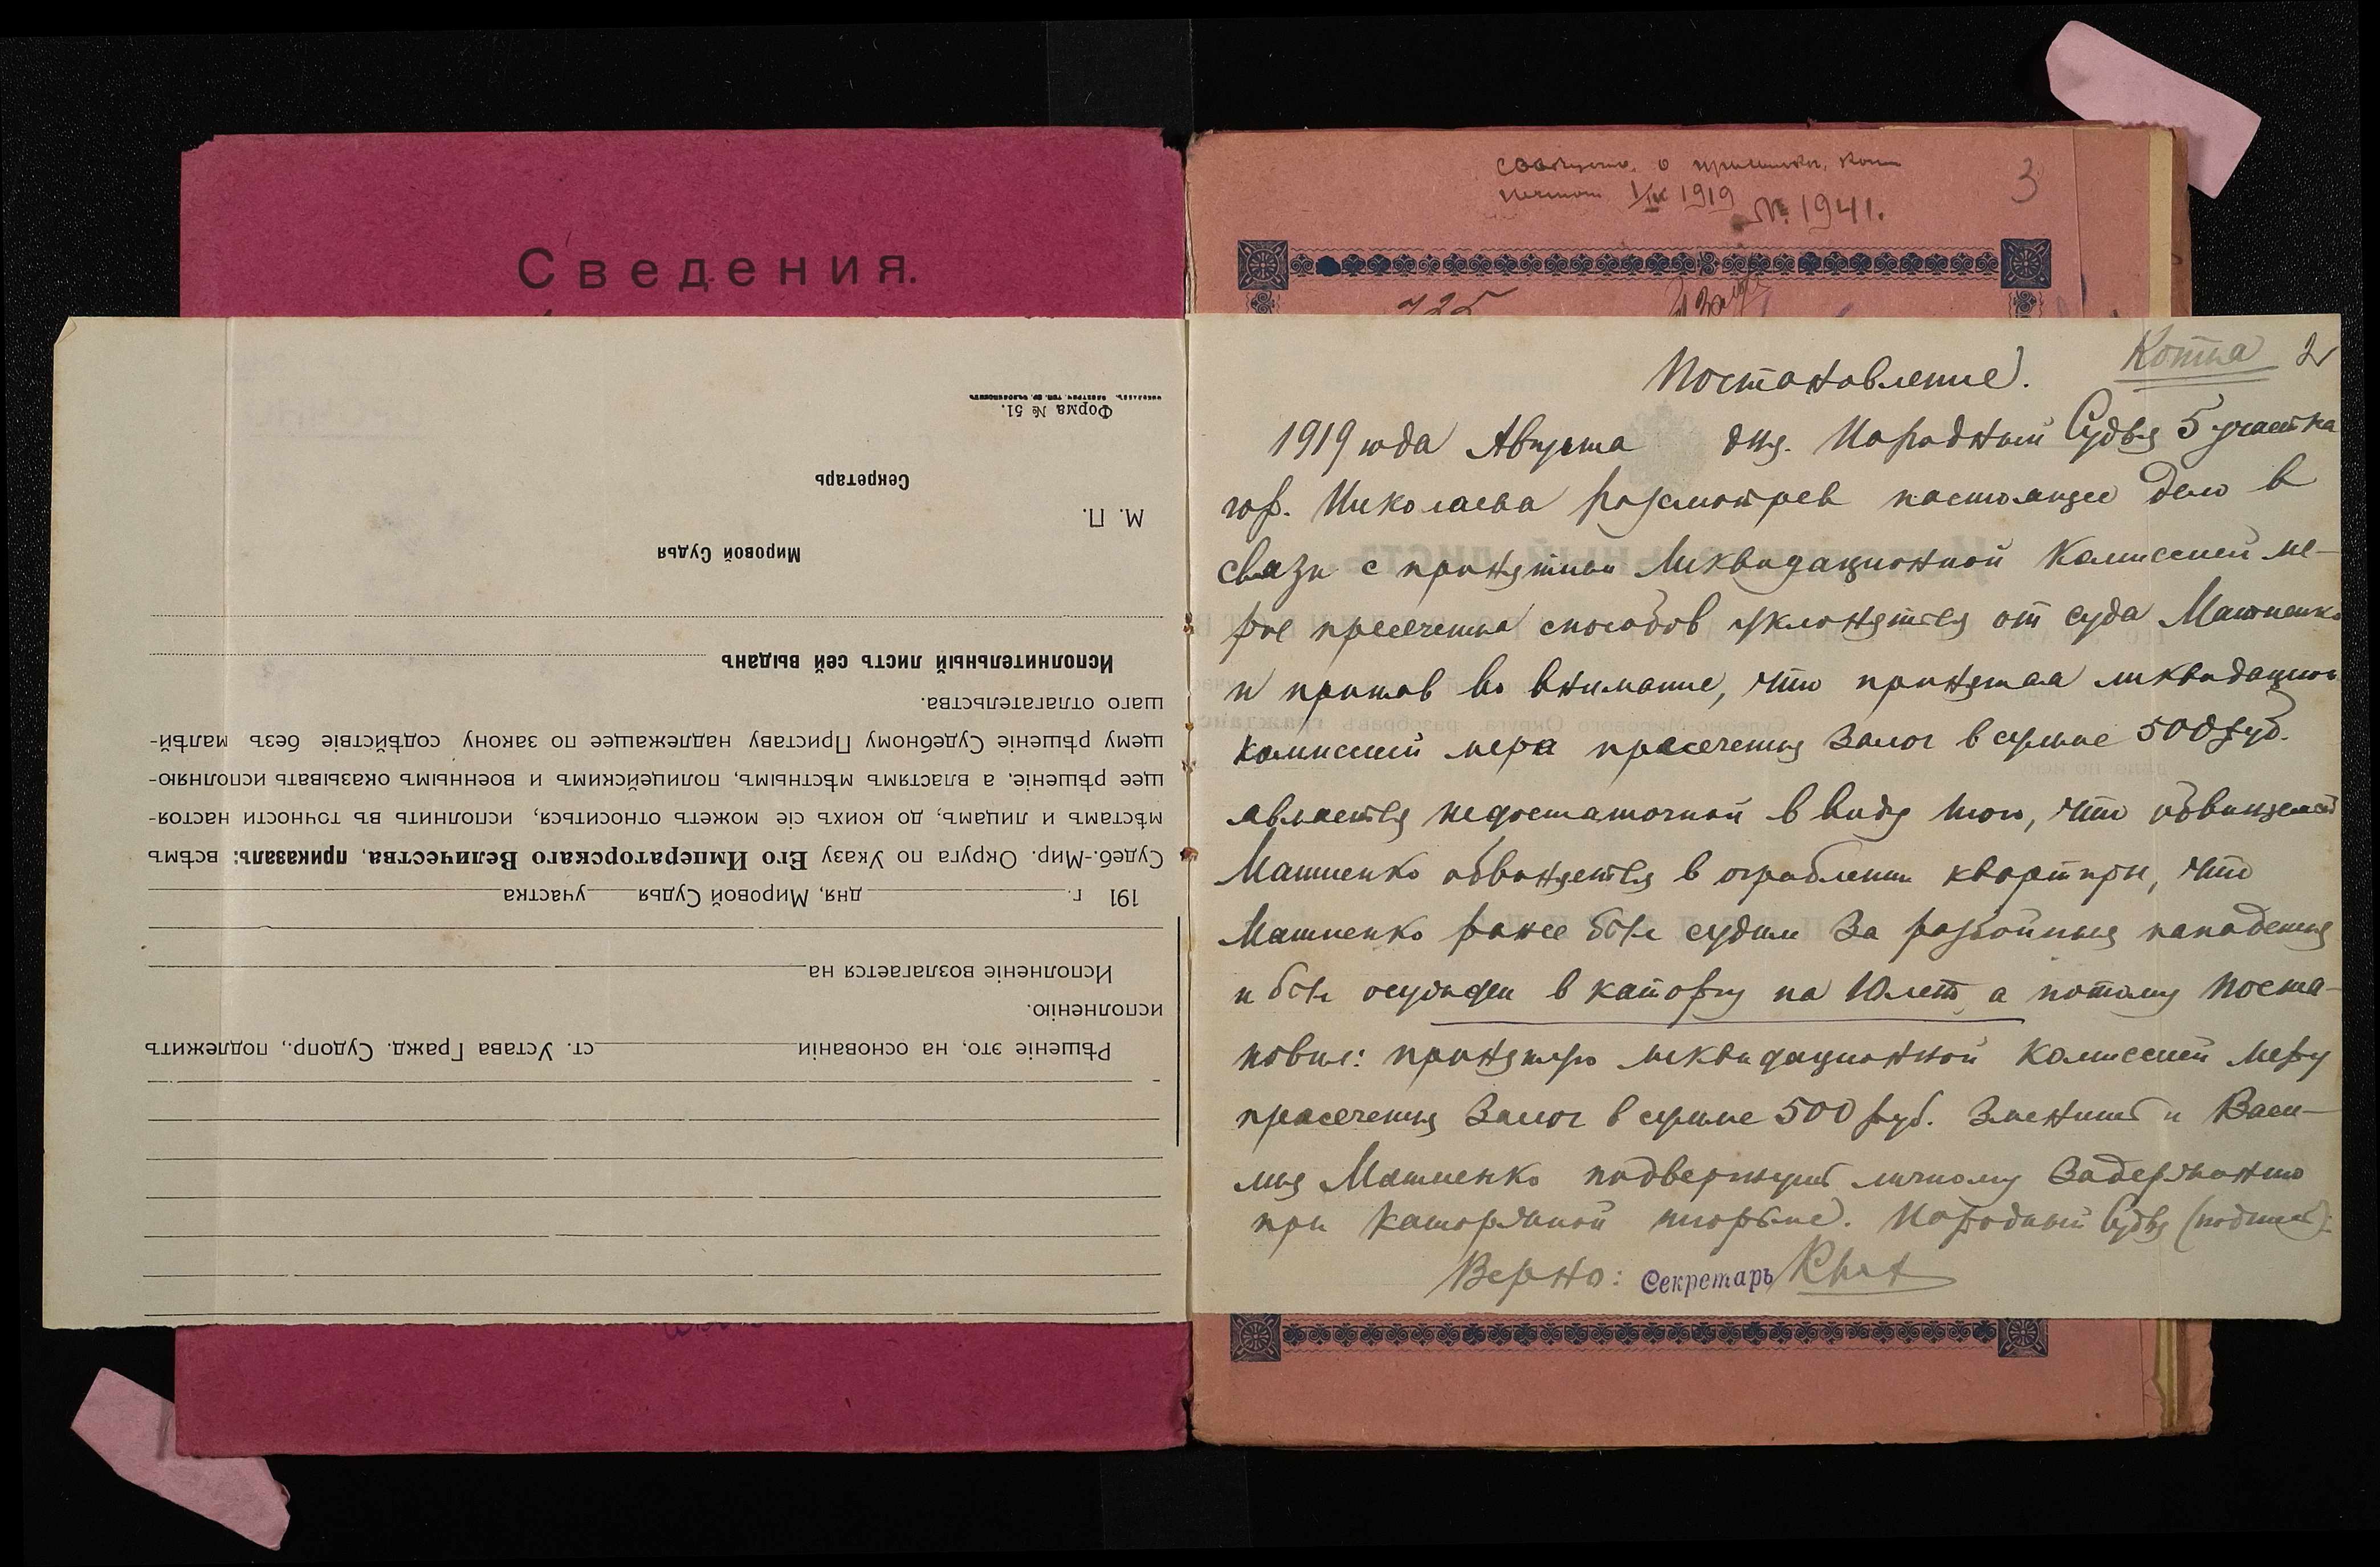 Сведения.
Форма № 51.
Секретарь
М. П.
Мировой Судья
Исполнительный листъ сей выданъ
шаго отлагательства.
щему рѣшеніе Судебному Приставу надлежащее по закону содѣйствіе безъ малѣй-
щее рѣшеніе, а властямъ мѣстнымъ, полицейскимъ и военнымъ оказывать исполняю-
мѣстамъ и лицамъ, до коихъ сіе можетъ относиться, исполнить въ точности настоя-
Судеб.-Мир. Округа по Указу Его Императорскаго Величества, приказалъ: всѣмъ
191 г. дня, Мировой Судья участка
Исполненіе возлагается на
исполненію.
Рѣшеніе это, на основаніи ст. Устава Гражд. Судопр., подлежитъ
о
1/IX 1919
№ 1941.
3
725
Копия 2
Постановление.
1919 года Августа дня. Народный Судья 5 участка
гор. Николаева рассмотрев настоящее дело в
связи с принятой Ликвидационной Комиссией ме-
рое пресечения способов уклоняться от суда Машненко
и приняв во внимание, что принятая ликвидацион
комиссией мера пресечения залог в сумме 500 руб.
является недостаточной в виду того, что обвиняемый
Машненко обвиняется в ограблении квартиры, что
Машненко ранее был судим за разбойныя нападения
и был осужден в каторгу на 10 лет, а потому поста-
новил: принятую ликвидационной комиссией меру
пресечения залог в сумме 500 руб. заменить и Васи-
лия Машненко подвергнуть личному задержанию
при каторжной тюрьме. Народный Судья (подпись).
Верно: Секретарь